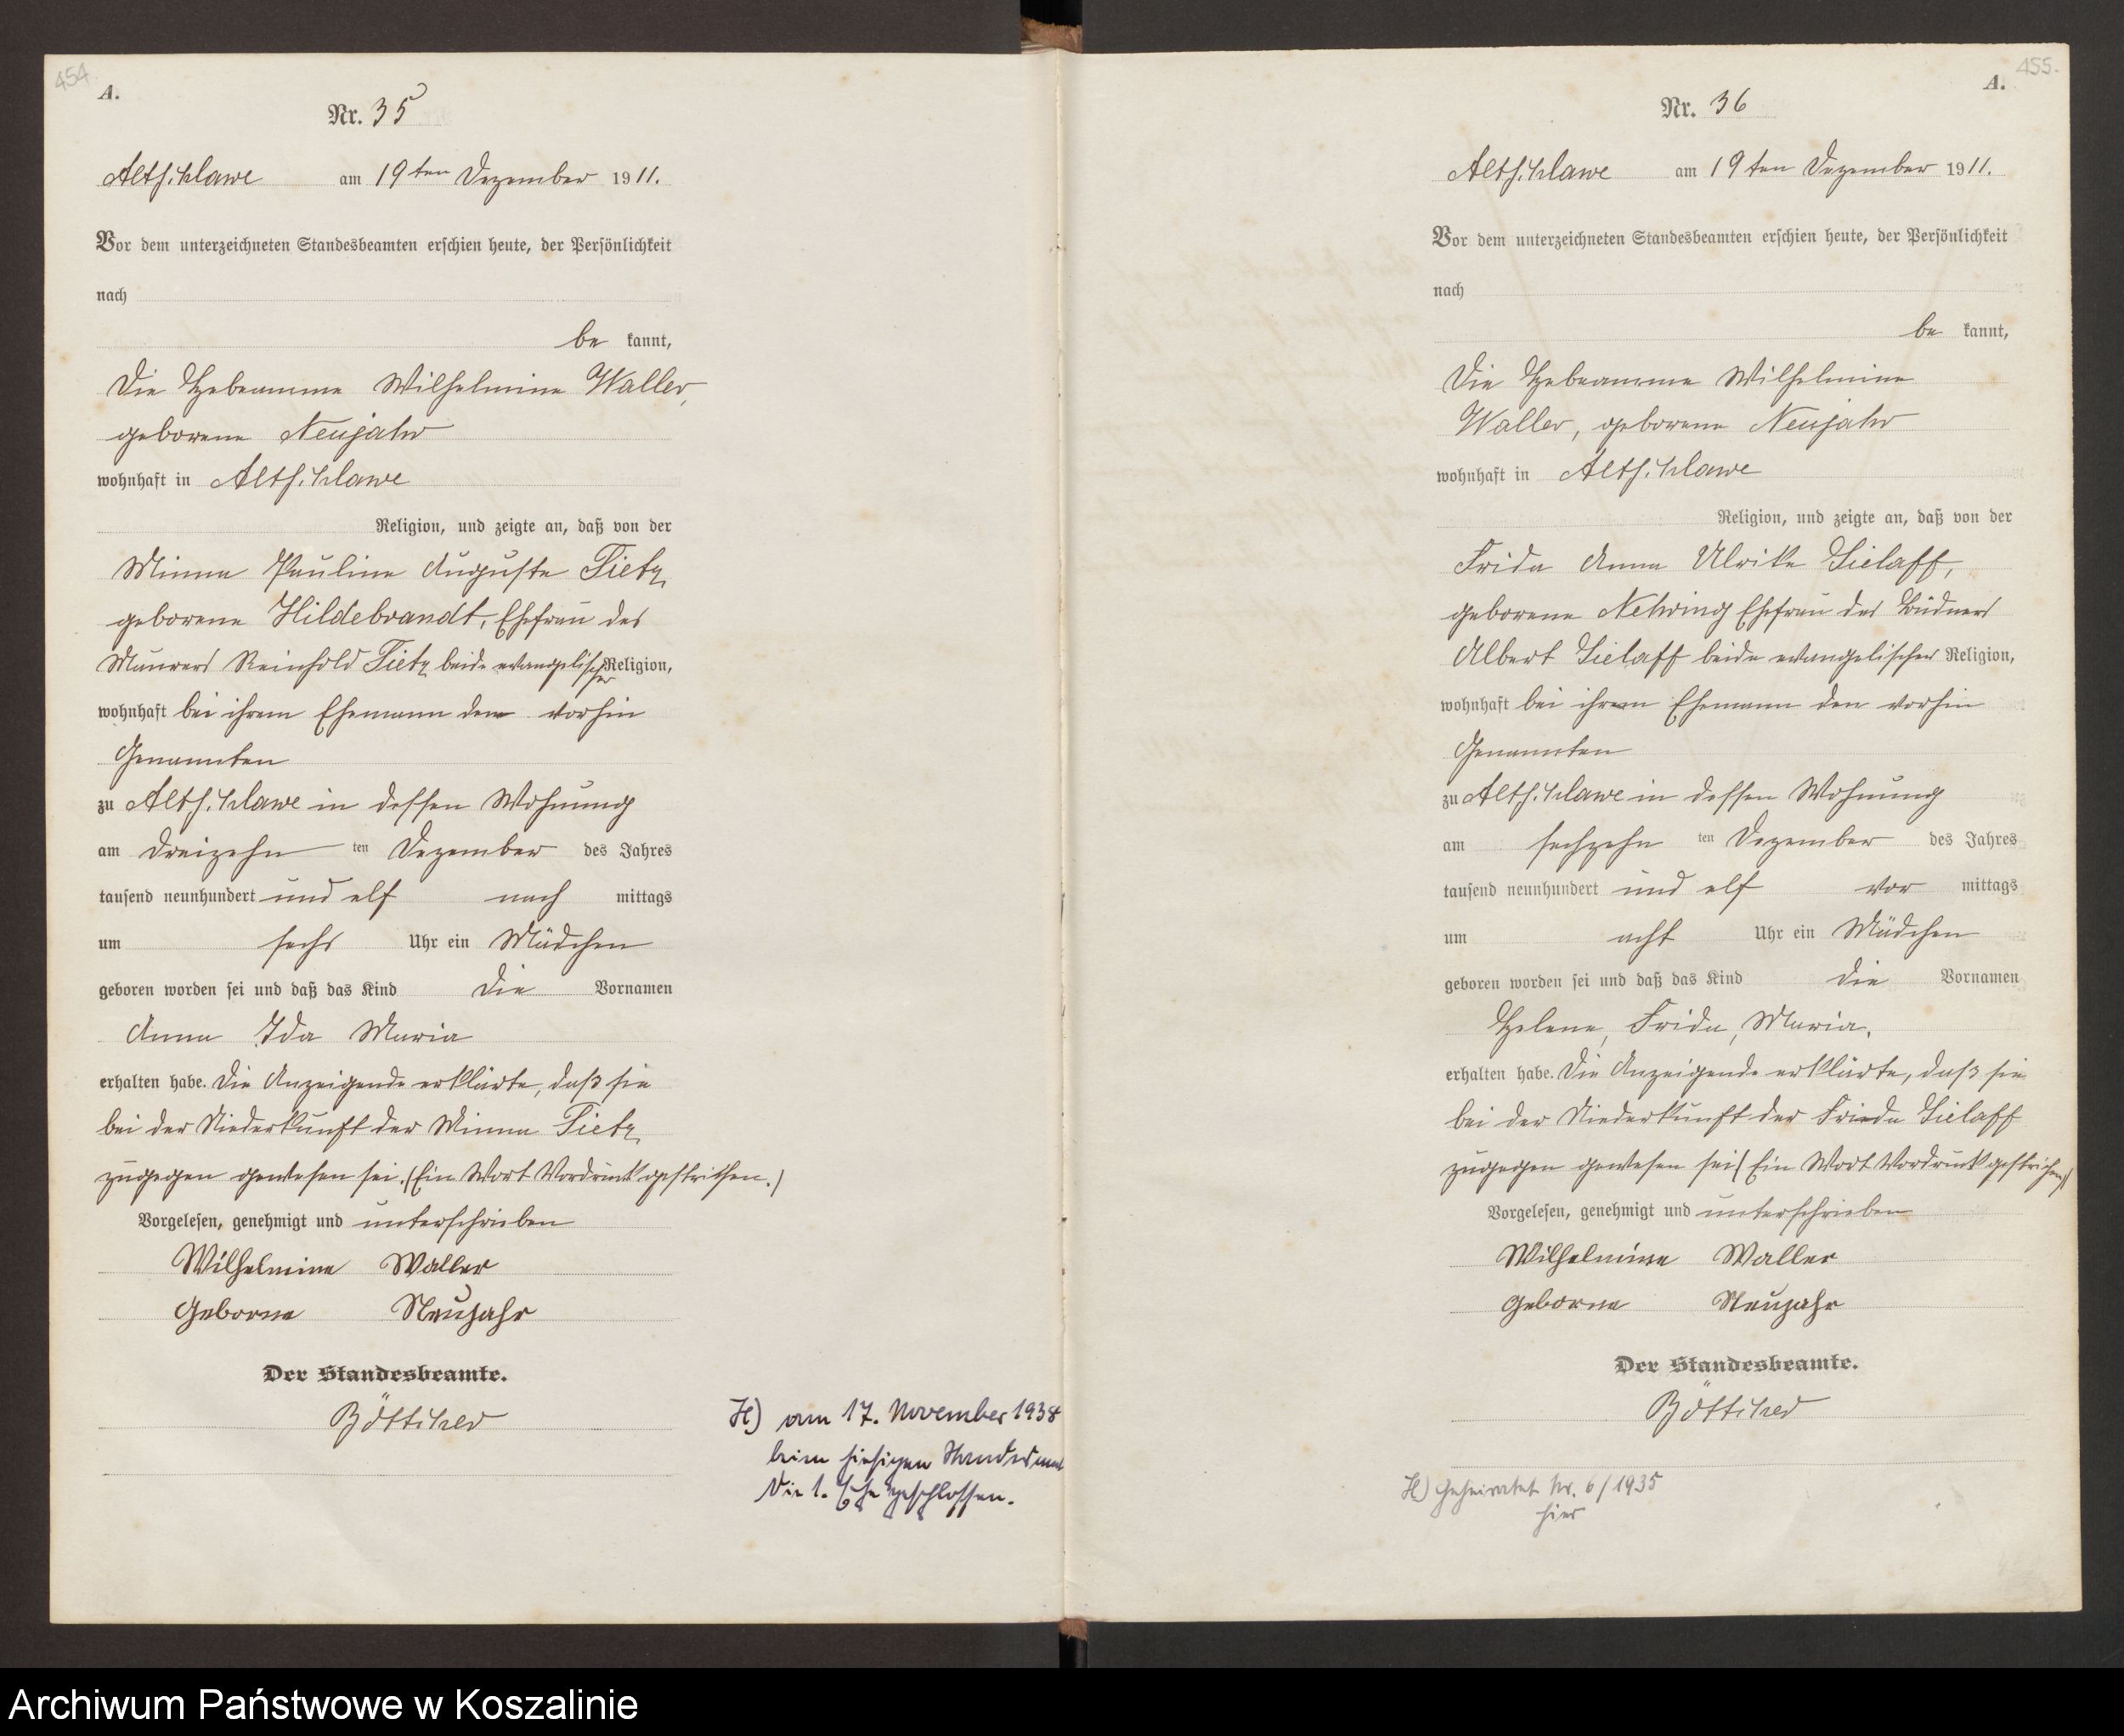 454
A.
Nr. 35
Altschlawe am 19ten Dezember 1911.
Vor dem unterzeichneten Standesbeamten erschien heute, der Persönlichkeit
nach
be kannt,
die Hebeamme Wilhelmine Waller,
geborene Neujahr
wohnhaft in Altschlawe
Religion, und zeigte an, daß von der
Minna Pauline Auguste Tietz,
geborene Hildebrandt, Ehefrau des
Maurers Reinhold Tietz beide evangelischer Religion,
wohnhaft bei ihrem Ehemann dem vorhin
Genannten
zu Altschlawe in dessen Wohnung
am dreizehn ten Dezember des Jahres
tausend neunhundert und elf nach mittags
um sechs Uhr ein Mädchen
geboren worden sei und daß das Kind die Vornamen
Anna Ida Maria
erhalten habe. Die Anzeigende erklärte, daß sie
bei der Niederkunft der Minna Tietz
zugegen gewesen sei. (Ein Wort Vordruck gestrichen.)
Vorgelesen, genehmigt und unterschrieben
Wilhelmine Waller
Geborne Neujahr
Der Standesbeamte.
Böttcher
H) am 17. November 1938
beim hiesigen Standesamt
die 1. Ehe geschlossen.
455.
A.
Nr. 36
Altschlawe am 19ten Dezember 1911.
Vor dem unterzeichneten Standesbeamten erschien heute, der Persönlichkeit
nach
be kannt,
die Hebeamme Wilhelmine
Waller, geborene Neujahr
wohnhaft in Altschlawe
Religion, und zeigte an, daß von der
Frida Anna Ulrike Sielaff,
geborene Nehring Ehefrau des Büdners
Albert Sielaff beide evangelischer Religion,
wohnhaft bei ihrem Ehemann den vorhin
Genannten
zu Altschlawe in dessen Wohnung
am sechzehn ten Dezember des Jahres
tausend neunhundert und elf vor mittags
um acht Uhr ein Mädchen
geboren worden sei und daß das Kind die Vornamen
Helene, Frida, Maria.
erhalten habe. Die Anzeigende erklärte, daß sie
bei der Niederkunft der Frieda Sielaff
zugegen gewesen sei (Ein Wort Vordruck gestrichen)
Vorgelesen, genehmigt und unterschrieben
Wilhelmine Waller
Geborne Neujahr
Der Standesbeamte.
Böttcher
H) Geheiratet Nr. 6/1935
hier
Archiwum Państwowe w Koszalinie